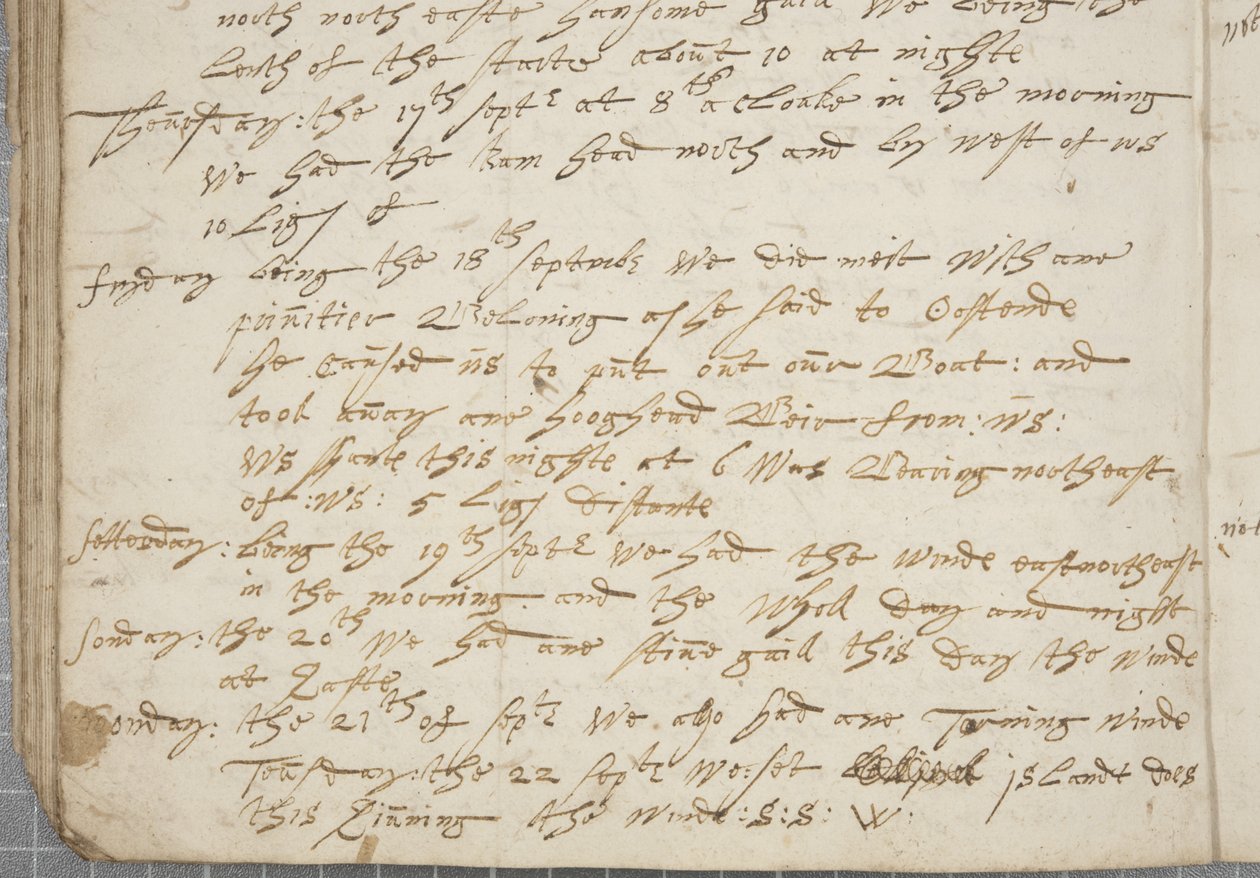 north north easte hansome gaill We being the
lenth of the starte about 10 at nighte
Theursday: the 17th septr at 8th a cloake in the morning
We had the Ram head north and by west of us
10 Ligs of
fryday being the 18th septmbr We did meit With ane
privitier Beloning as he said to Oostende
he caused us to put out our Boat: and
took away ane hooghead Beir from: us:
this nighte at 6 Was Bearing northeast
of: ws: 5 Ligs distante
setterday: being the 19th septr We had the winde eastnortheast
in the morning and the Wholl day and night
sonday: the 20th We had ane stive gaill this day the winde
at Easte
monday: the 21th of septr We also had ane Torning winde
Teusday: the 22 septr We: set islandt does
this Eivning the winde: S: S: W: